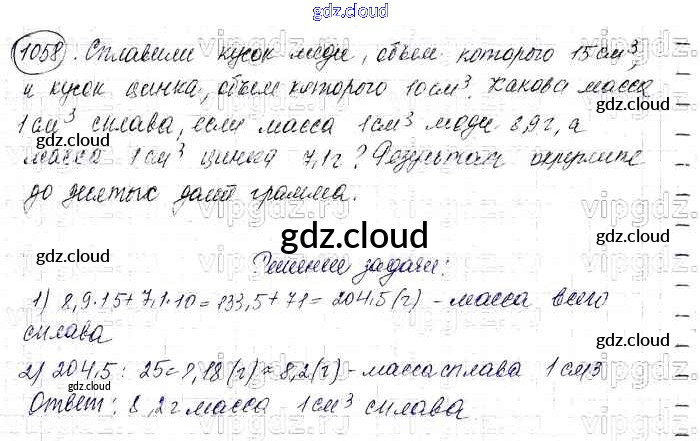 gdz.cloud
1058. Сплавили кусок меди, объем которого 15 см³,
и кусок цинка, объем которого 10 см³. Какова масса
1 см³ сплава, если масса 1 см³ меди 8,9 г, а
масса 1 см³ цинка 7,1 г? Результат округлите
до десятых долей грамма.
gdz.cloud
Решение задачи:
1) 8,9·15+7,1·10=133,5+71=204,5(г) - масса всего
сплава
2) 204,5:25=8,18(г)≈8,2(г)-масса сплава 1 см3
Ответ: 8,2г масса 1 см³ сплава